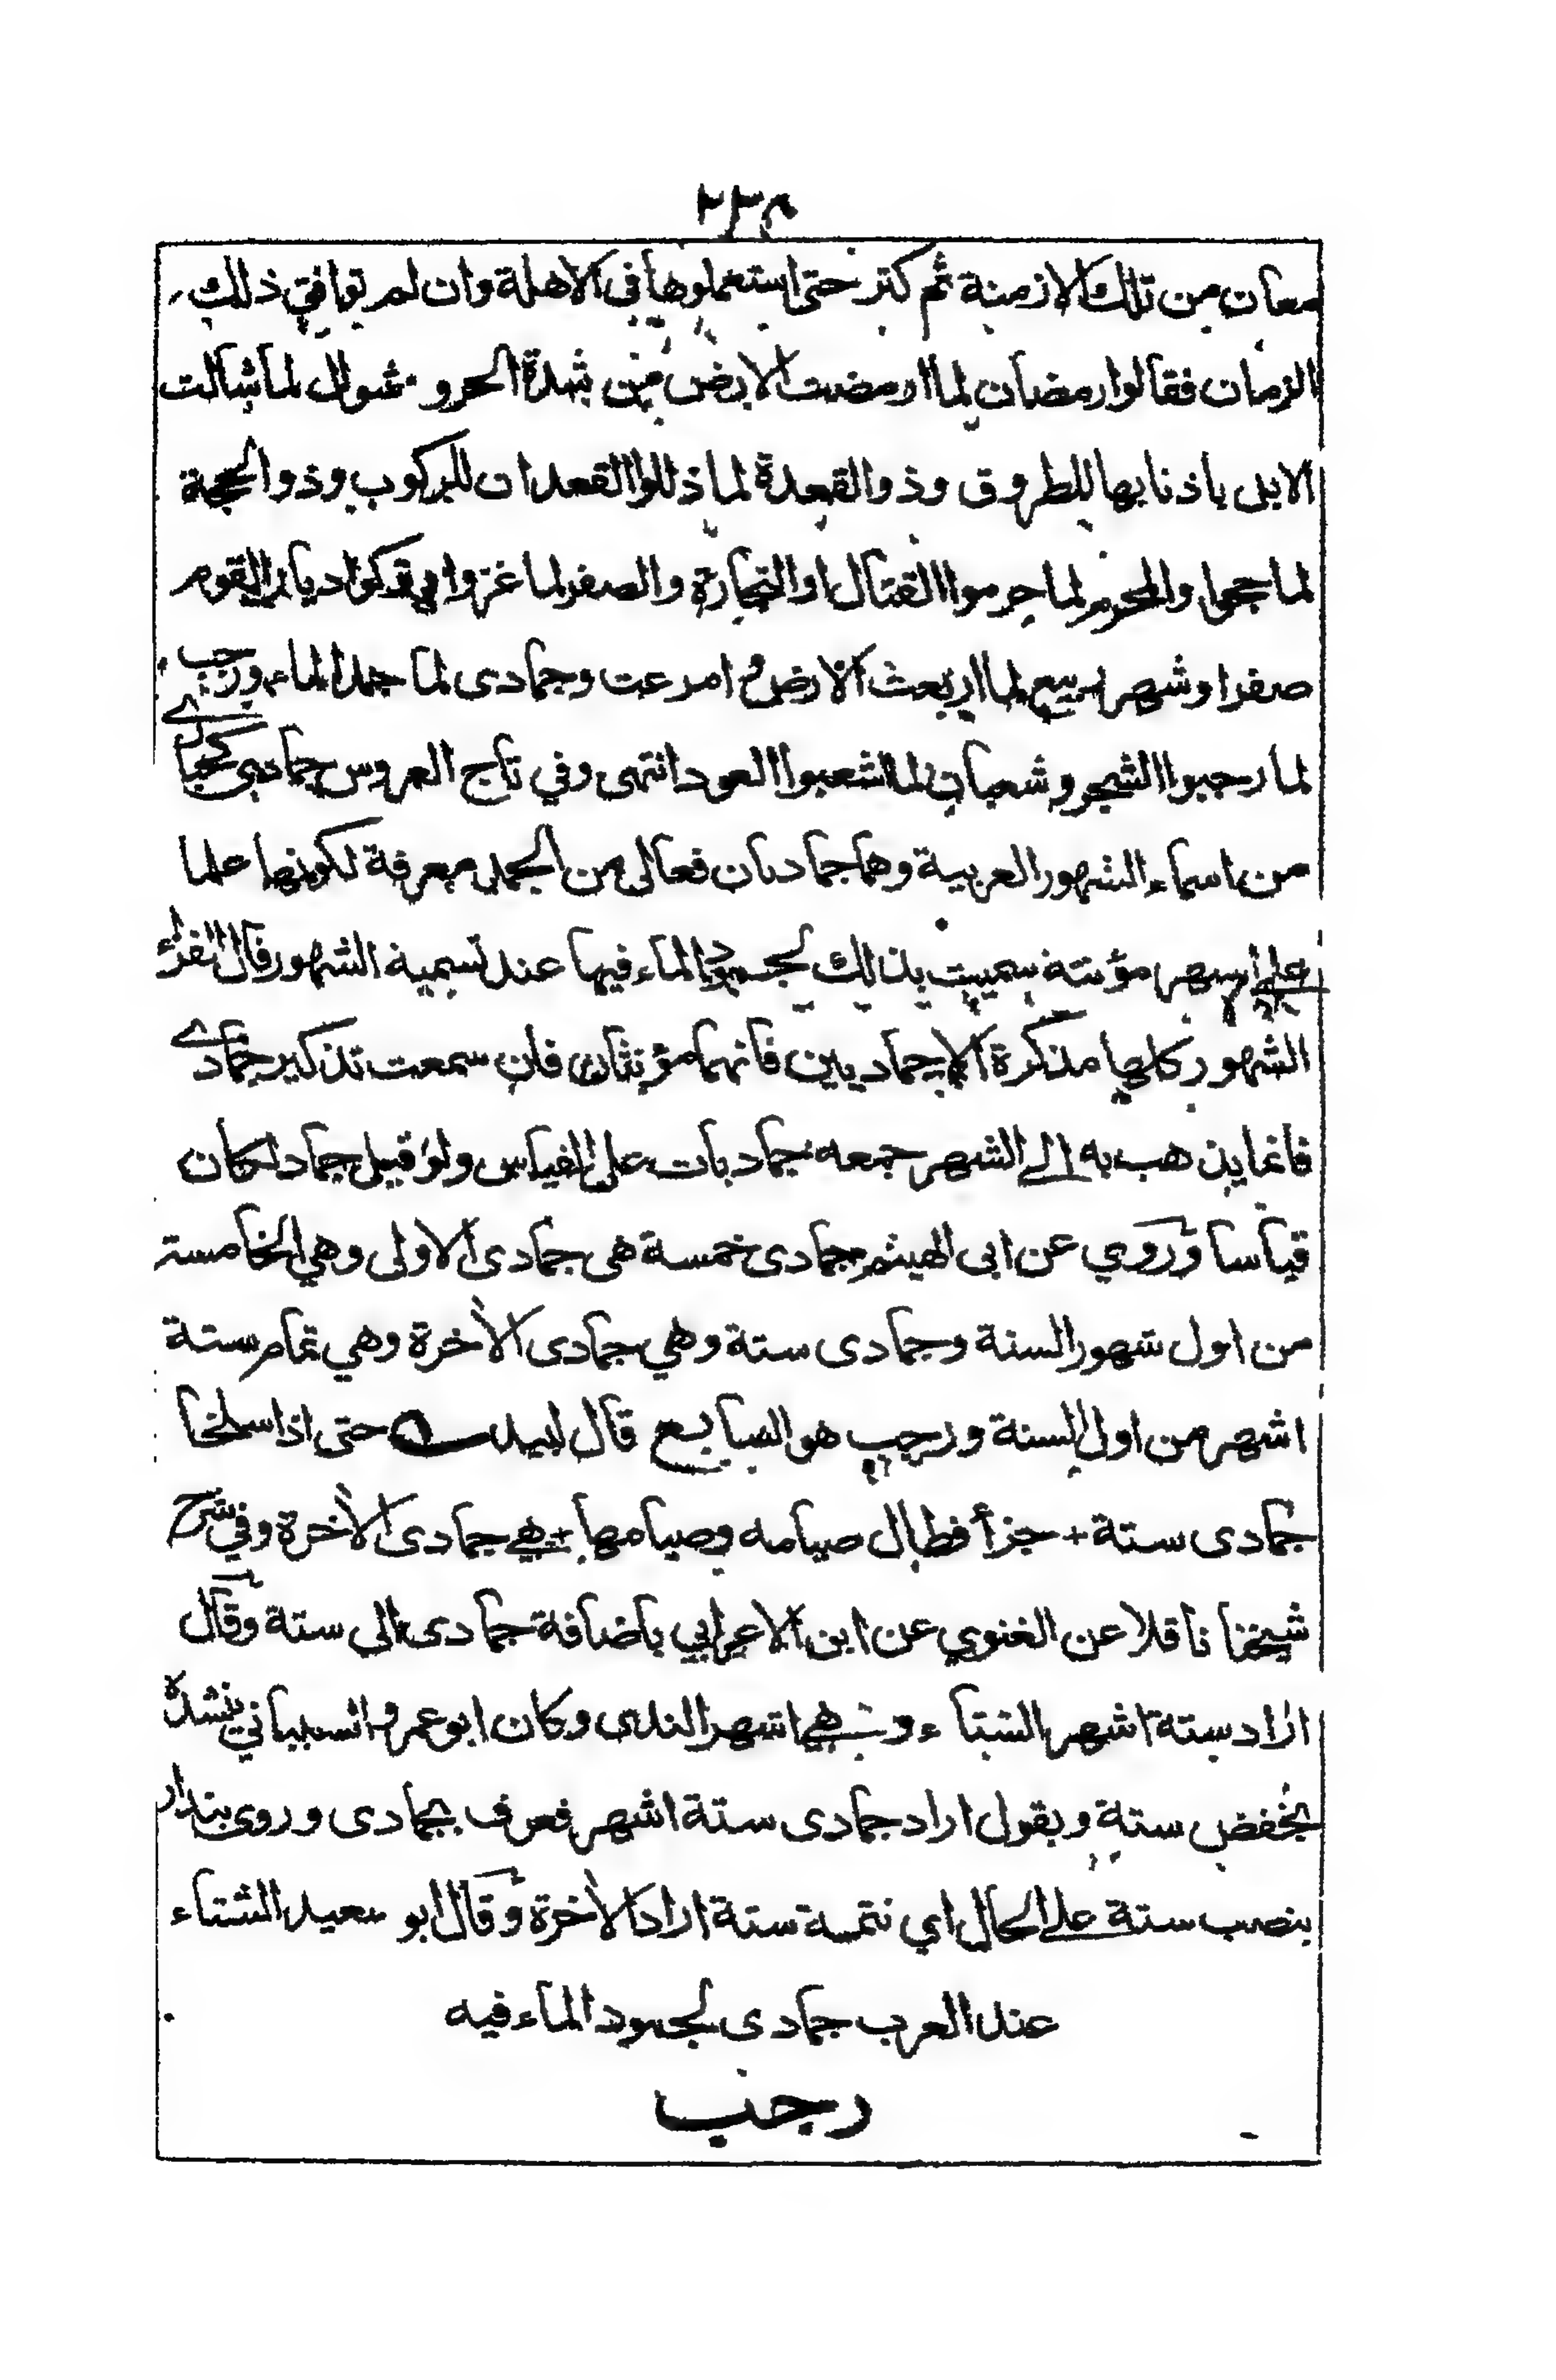 معان من تلك الازمنة ثم كثر حتى استعملوها في الاهلة وان لم توافق ذلك
الزمان فقالوا رمضان لما ارمضت الارض من شدة الحر و شوال لما شالت
الابل باذنابها للطروق وذوالقعدة لما ذللوا القعدان للركوب وذوالحجة
لما حجوا والمحرم لما حرموا القتال اوالتجارة والصفر لما غزوا فتركوا ديار القوم
صفرا وشهر ربيع لما اربعت الارض و امرعت وجمادى لما جمد الماء ورجب
لما رجبوا الشجر وشعبان لما اشعبوا العود انتهى وفي تاج العروس جمادى كحبارى
من اسماء الشهور العربية وهما جماديان فعالى من الجمد معرفة لكونها علما
على شهر مؤنثة سميت بذلك لجمود الماء فيها عند تسمية الشهور قال الفراء
الشهور كلها مذكرة الا جماديين فانهما مؤنثان فان سمعت تذكير جمادى
فانما يذهب به الى الشهر جمعه جماديات على القياس ولو قيل جماد لكان
قياسا وروي عن ابى الهيثم جمادى خمسة هى جمادى الاولى وهي الخامسة
من اول شهور السنة وجمادى ستة وهي جمادى الاخرة وهي تمام ستة
اشهر من اول السنة ورجب هو السابع قال لبيد حتى اذا سلخا
جمادى ستة + جزأ فطال صيامه وصيامها + هي جمادى الاخرة وفي شرح
شيخنا ناقلا عن الغنوي عن ابن الاعرابي باضافة جمادى الى ستة وقال
اراد ستة اشهر الشتاء و هي اشهر الندى وكان ابو عمرو الشيباني ينشده
بخفض ستة ويقول اراد جمادى ستة اشهر فعرف بجمادى وروى بندار
بنصب ستة على الحال اي تتمة ستة اراد الاخرة وقال ابو سعيد الشتاء
عند العرب جمادى لجمود الماء فيه
رجب